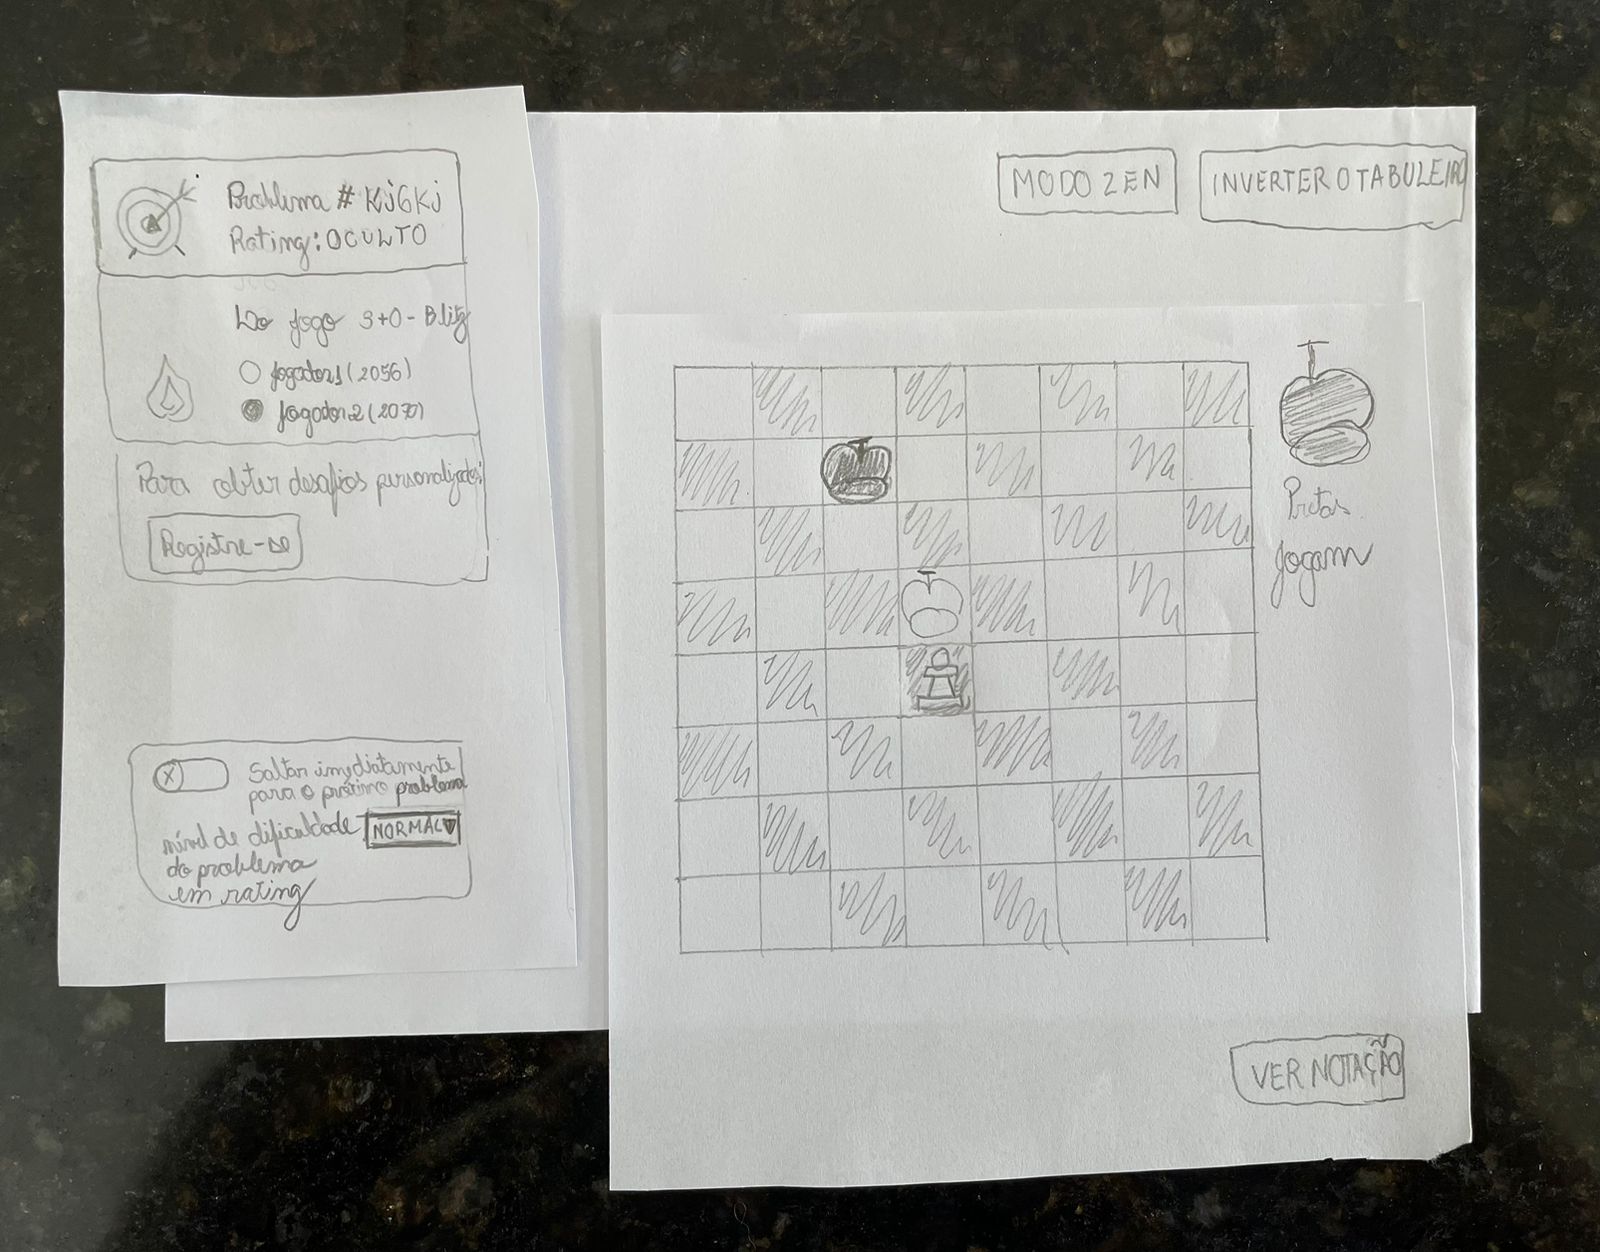 Problema # Kj6Kj
Rating: OCULTO
Do jogo 3+0 - Blitz
Jogador1 (2056)
Jogador2 (2070)
Para obter desafios personalizados:
Registre-se
X
Saltar imediatamente
para o próximo problema
nível de dificuldade NORMAL
do problema
em rating
MODO ZEN
INVERTER O TABULEIRO
Pretas
Jogam
VER NOTAÇÃO